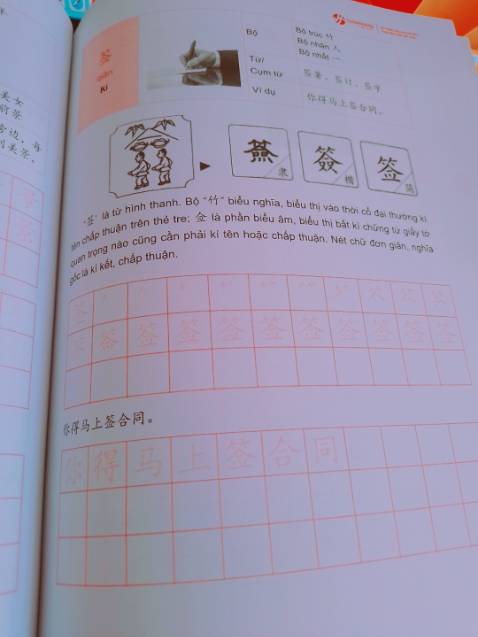 签
qiān
Kí
Bộ
Bộ trúc 竹
Bộ nhân 人
Bộ nhất 一
Từ/
Cụm từ
签署、签订、签字
Ví dụ
你得马上签合同。
隶
楷
签
简
"签" là từ hình thanh. Bộ "竹" biểu nghĩa, biểu thị vào thời cổ đại thường kí
tên chấp thuận trên thẻ tre; 佥 là phần biểu âm, biểu thị bất kì chứng từ giấy tờ
quan trọng nào cũng cần phải kí tên hoặc chấp thuận. Nét chữ đơn giản, nghĩa
gốc là kí kết, chấp thuận.
签 签 签 签 签 签 签 签 签 签
你得马上签合同。
你 得 马 上 签 合 同